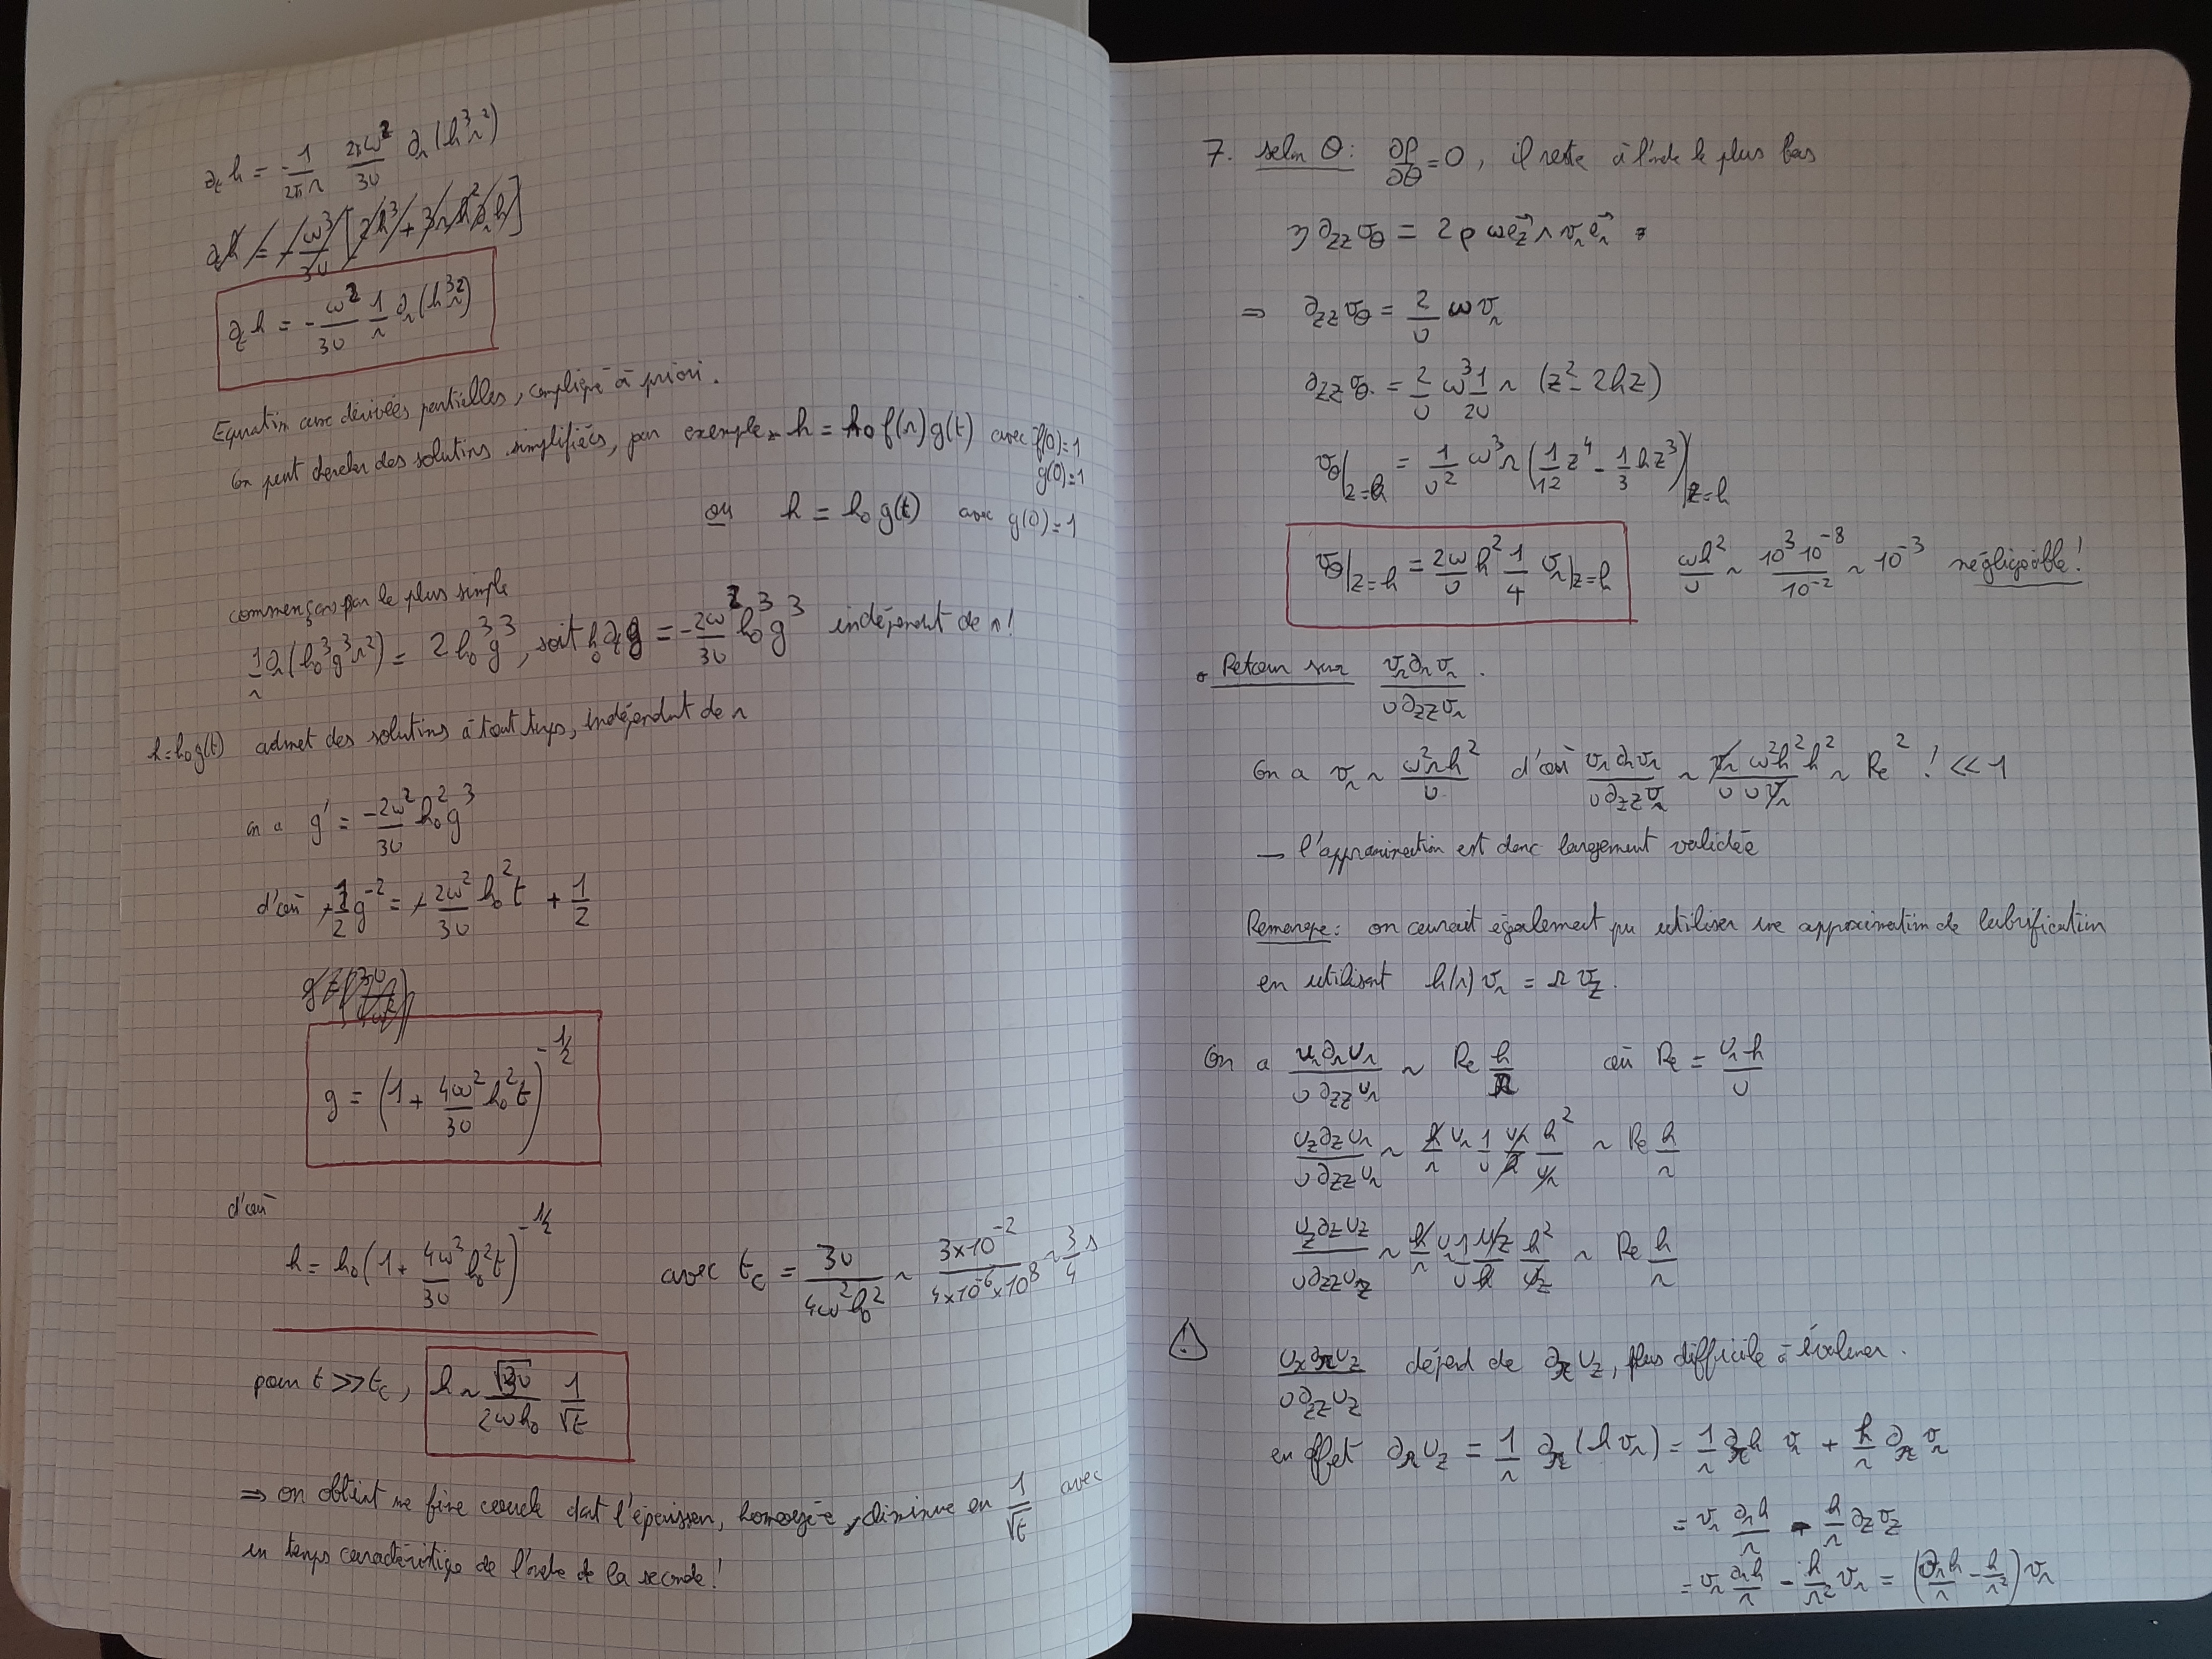 ∂_t h = - 1/(2πr) 2πω²/(3υ) ∂_r (h³r²)
∂_t h = - ω³/(3υ) [2h³ + 3r h² ∂_r h]
∂_t h = - ω²/(3υ) 1/r ∂_r (h³r²)
Equation aux dérivées partielles, compliqué à priori.
On peut chercher des solutions simplifiées, par exemple h = h₀ f(r) g(t) avec f(0)=1
g(0)=1
ou h = h₀ g(t) avec g(0)=1
commençons par le plus simple
1/r ∂_r (h₀³g³r²) = 2h₀³g³, soit h₀ ∂_t g = -2ω²/(3υ) h₀³g³ indépendant de r!
h=h₀g(t) admet des solutions à tout temps, indépendant de r
on a g' = -2ω²/(3υ) h₀²g³
d'où -1/2 g⁻² = -2ω²/(3υ) h₀²t + 1/2
g = (1 + 4ω²/(3υ) h₀²t)^(-1/2)
d'où
h = h₀ (1 + 4ω²/(3υ) h₀²t)^(-1/2) avec t_c = 3υ/(4ω²h₀²) ~ 3×10⁻²/(4×10⁻⁶×10⁸) ~ 3/4 s
pour t >> t_c, h ~ √(3υ)/(2ωh₀) 1/√t
⇒ on obtient une fine couche dont l'épaisseur, homogène, diminue en 1/√t avec
un temps caractéristique de l'ordre de la seconde!
7. selon θ: ∂P/∂θ = 0, il reste à l'ordre le plus bas
η ∂_zz v_θ = 2ρ ω e_z ∧ v_r e_r
⇒ ∂_zz v_θ = 2/υ ω v_r
∂_zz v_θ = 2/υ ω³ 1/(2υ) r (z² - 2hz)
v_θ|z=h = 1/υ² ω³ r (1/12 z⁴ - 1/3 hz³)|z=h
v_θ|z=h = 2ω/υ h² 1/4 v_r|z=h ωh²/υ ~ 10³ 10⁻⁸/10⁻² ~ 10⁻³ négligeable!
• Retour sur v_r ∂_r v_r / υ ∂_zz v_r .
On a v_r ~ ω²rh²/υ d'où v_r ∂_r v_r / υ ∂_zz v_r ~ v_r ω²h² h² / υ υ v_r ~ Re² ! << 1
→ l'approximation est donc largement validée
Remarque: on aurait également pu utiliser une approximation de lubrification
en utilisant h(r) v_r = r v_z.
On a v_r ∂_r v_r / υ ∂_zz v_r ~ Re h/r où Re = v_r h/υ
v_z ∂_z v_r / υ ∂_zz v_r ~ h/r v_r 1/υ v_r/h h²/v_r ~ Re h/r
v_z ∂_z v_z / υ ∂_zz v_z ~ h/r v_r 1/υ v_z/h h²/v_z ~ Re h/r
⚠ v_r ∂_r v_z / υ ∂_zz v_z dépend de ∂_r v_z, plus difficile à évaluer.
en effet ∂_r v_z = 1/r ∂_r (h v_r) = 1/r ∂_r h v_r + h/r ∂_r v_r
= v_r ∂_r h/r - h/r ∂_z v_z
= v_r ∂_r h/r - h/r² v_r = (∂_r h/r - h/r²) v_r